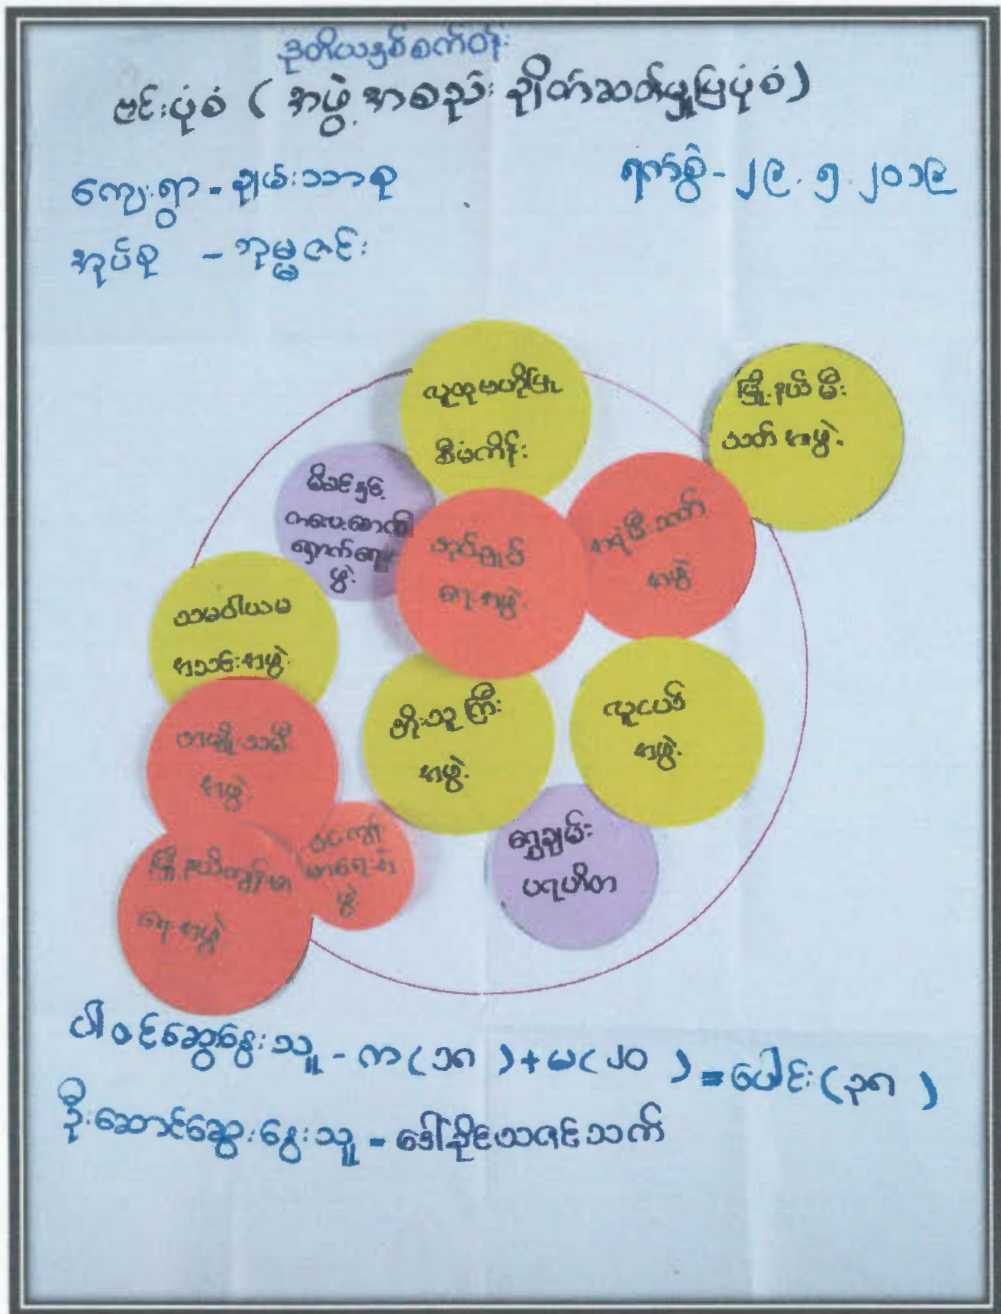 ဒုတိယနှစ်စက်ဝန်း
ဗင်းပုံစံ ( အဖွဲ့အစည်း ချိတ်ဆက်မှုပြပုံစံ )
ကျေးရွာ - ချမ်းသာစု
ရက်စွဲ - ၂၉.၅.၂၀၁၉
အုပ်စု - ဘုမ္မဇင်း
လူထုဗဟိုပြု
စီမံကိန်း
မြို့နယ်မီး
သတ်အဖွဲ့
မိခင်နှင့်
ကလေးစောင့်
ရှောက်ရေး
ဖွဲ့
အုပ်ချုပ်
ရေးအဖွဲ့
အရံမီးသတ်
အဖွဲ့
သမဝါယမ
အသင်းအဖွဲ့
အမျိုးသမီး
အဖွဲ့
ကိုးသူကြီး
အဖွဲ့
လူငယ်
အဖွဲ့
မြို့နယ်ကျန်းမာ
ရေးအဖွဲ့
မာရေးအ
ဖွဲ့
ရွှေချမ်း
ပရဟိတ
ပါဝင်ဆွေးနွေးသူ - က (၁၈) + မ (၂၀) = ပေါင်း (၃၈)
ဦးဆောင်ဆွေးနွေးသူ - ဒေါ်ခိုင်သဇင်သက်